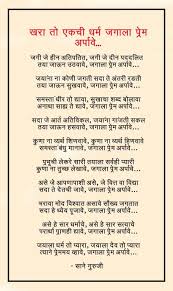 खरा तो एकची धर्म जगाला प्रेम
अर्पावे...
जगी जे हीन अतिपतित, जगी जे दीन पददलित
तया जाऊन उठवावे, जगाला प्रेम अर्पावे...
जयांना ना कोणी जगती सदा ते अंतरी रडती
तया जाऊन सुखवावे, जगाला प्रेम अर्पावे...
समस्ता धीर तो द्यावा, सुखाचा शब्द बोलावा
अनाथा साह्य ते द्यावे, जगाला प्रेम अर्पावे...
सदा जे आर्त अतिविकल, जयांना गांजती सकल
तया जाऊन हसवावे, जगाला प्रेम अर्पावे...
कुणा ना व्यर्थ शिणवावे, कुणा ना व्यर्थ हिणवावे
समस्ता बंधु मानावे, जगाला प्रेम अर्पावे...
प्रभूची लेकरे सारी तयाला सर्वही प्यारी
कुणा ना तुच्छ लेखावे, जगाला प्रेम अर्पावे...
असे जे आपणापाशी असे, जे वित्त वा विद्या
सदा ते देतची जावे, जगाला प्रेम अर्पावे...
भरावा मोद विश्वात असावे सौख्य जगतात
सदा हे ध्येय पूजावे, जगाला प्रेम अर्पावे...
असे हे सार धर्माचे, असे हे सार सत्याचे
परार्थी प्राणही द्यावे, जगाला प्रेम अर्पावे...
जयाला धर्म तो प्यारा, जयाला देव तो प्यारा
त्याने प्रेममय व्हावे, जगाला प्रेम अर्पावे...
- साने गुरुजी